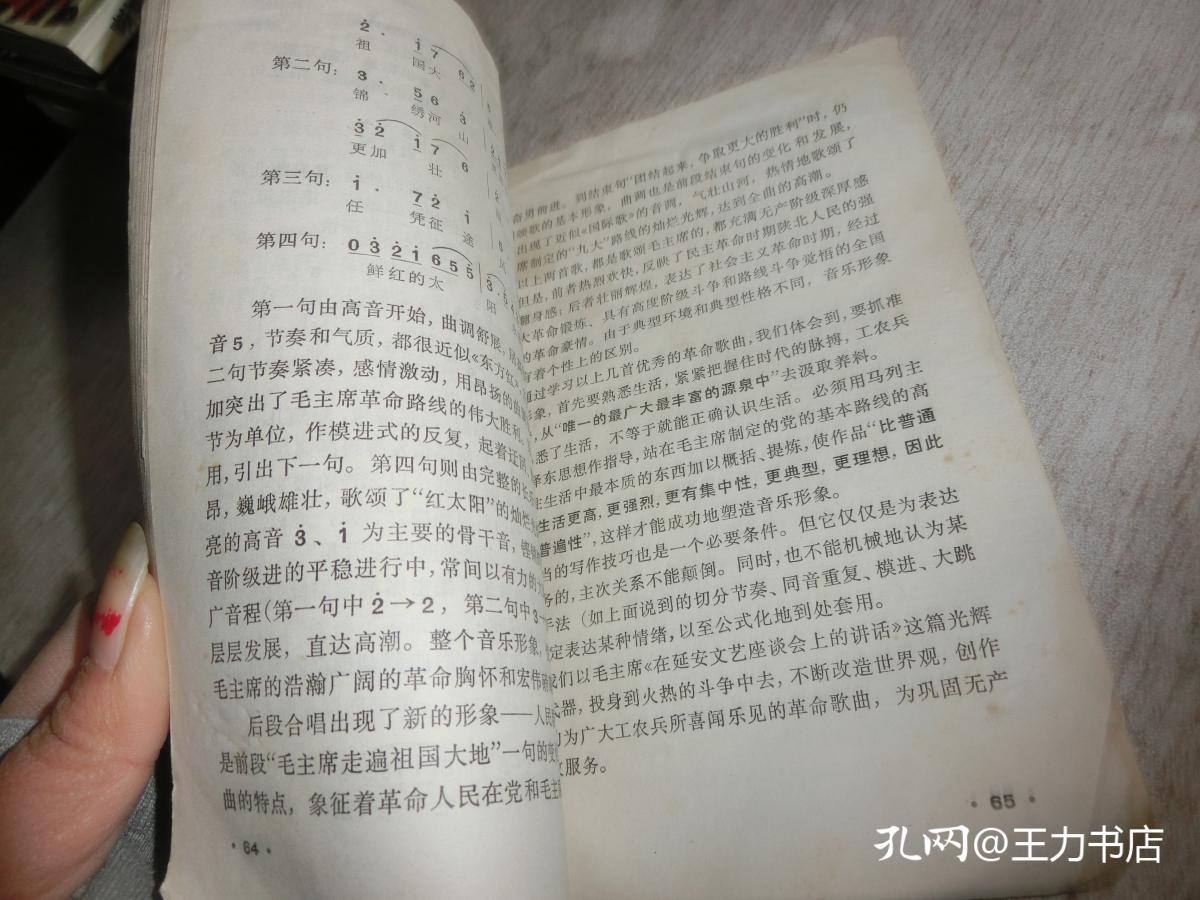 2̇ · 1̇ 7 6 2̇
祖 国 大
第二句: 3 · 5 6 3̇
锦 绣 河 山
3̇ 2̇ 1̇ 7 6
更加 壮
第三句: 1̇ · 7 2̇ 1̇
任 凭 征 途
第四句: 0 3̇ 2̇ 1̇ 6 5 5̇ 3̇ . 5
鲜红的太 阳
第一句由高音开始,曲调舒展,
音5,节奏和气质,都很近似《东方红》
二句节奏紧凑,感情激动,用昂扬的
加突出了毛主席革命路线的伟大胜利。
节为单位,作模进式的反复,起着迂回
用,引出下一句。第四句则由完整的长
昂,巍峨雄壮,歌颂了“红太阳”的灿烂
亮的高音3̇、1̇为主要的骨干音,
音阶级进的平稳进行中,常间以有力的
广音程(第一句中2̇→2,第二句中3
层层发展,直达高潮。整个音乐形象,
毛主席的浩瀚广阔的革命胸怀和宏伟
后段合唱出现了新的形象——人民
是前段“毛主席走遍祖国大地”一句的变
曲的特点,象征着革命人民在党和毛主
· 64 ·
奋勇前进。到结束句“团结起来,争取更大的胜利”时,仍
颂歌的基本形象,曲调也是前段结束句的变化和发展,
出现了近似《国际歌》的音调,气壮山河,热情地歌颂了
席制定的“九大”路线的灿烂光辉,达到全曲的高潮。
以上两首歌,都是歌颂毛主席的,都充满无产阶级深厚感
但是,前者热烈欢快,反映了民主革命时期陕北人民的强
翻身感;后者壮丽辉煌,表达了社会主义革命时期,经过
大革命锻炼、具有高度阶级斗争和路线斗争觉悟的全国
的革命豪情。由于典型环境和典型性格不同,音乐形象
有着个性上的区别。
通过学习以上几首优秀的革命歌曲,我们体会到,要抓准
形象,首先要熟悉生活,紧紧把握住时代的脉搏,工农兵
,从“唯一的最广大最丰富的源泉中”去汲取养料。
悉了生活,不等于就能正确认识生活。必须用马列主
泽东思想作指导,站在毛主席制定的党的基本路线的高
生活中最本质的东西加以概括、提炼,使作品“比普通
生活更高,更强烈,更有集中性,更典型,更理想,因此
普遍性”,这样才能成功地塑造音乐形象。
当的写作技巧也是一个必要条件。但它仅仅是为表达
务的,主次关系不能颠倒。同时,也不能机械地认为某
手法(如上面说到的切分节奏、同音重复、模进、大跳
定表达某种情绪,以至公式化地到处套用。
们以毛主席《在延安文艺座谈会上的讲话》这篇光辉
器,投身到火热的斗争中去,不断改造世界观,创作
为广大工农兵所喜闻乐见的革命歌曲,为巩固无产
服务。
· 65 ·
孔网@王力书店